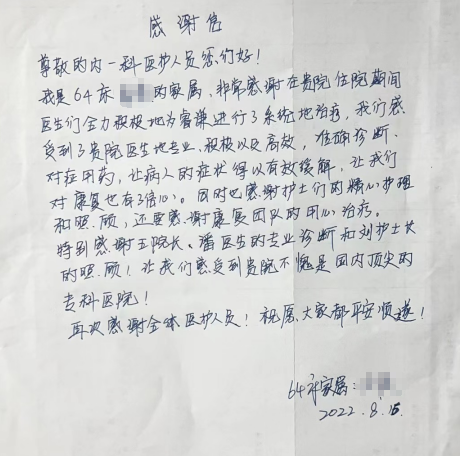 感谢信
尊敬的内一科医护人员您们好！
我是64床的家属，非常感谢在贵院住院期间
医生们全力积极地为睿谦进行了系统地治疗，我们感
受到了贵院医生地专业、积极以及高效，准确诊断、
对症用药，让病人的症状得以有效缓解，让我们
对康复也有了信心。同时也感谢护士们的精心护理
和照顾，还要感谢康复团队的用心治疗。
特别感谢王院长、潘医生的专业诊断和刘护士长
的照顾！让我们感受到贵院不愧是国内顶尖的
专科医院！
再次感谢全体医护人员！祝愿大家都平安顺遂！
64床家属：
2022.8.15